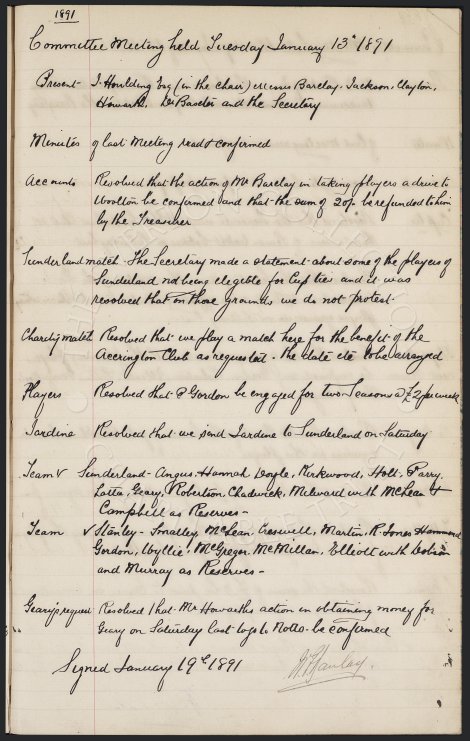 1891
Committee Meeting held Tuesday January 13th 1891
Present - J. Houlding Esq (in the chair) Messrs Barclay, Jackson, Clayton,
Howarth, Dr Baxter and the Secretary
Minutes of last Meeting read & confirmed
Accounts Resolved that the action of Mr Barclay in taking players a drive to
Woolton be confirmed and that the sum of 20/- be refunded to him
by the Treasurer
Sunderland match - The Secretary made a statement about some of the players of
Sunderland not being elegible for Cup ties and it was
resolved that on those grounds we do not protest.
Charity match Resolved that we play a match here for the benefit of the
Accrington Club as requested - the date etc to be arranged
Players Resolved that P Gordon be engaged for two Seasons @ £2 per week
Jardine Resolved that we send Jardine to Sunderland on Saturday
Team V Sunderland - Angus, Hannah Doyle, Kirkwood, Holt, Parry,
Latta, Geary, Robertson, Chadwick, Milward with McLean &
Campbell as Reserves -
Team V Stanley - Smalley, McLean, Cresswell, Martin, R Jones, Hammond
Gordon, Wyllie, McGregor, McMillan, Elliott with Lobson
and Murray as Reserves -
Geary's request Resolved that Mr Howarths action in obtaining money for
Geary on Saturday last to go to Notts - be confirmed
Signed January 19th 1891